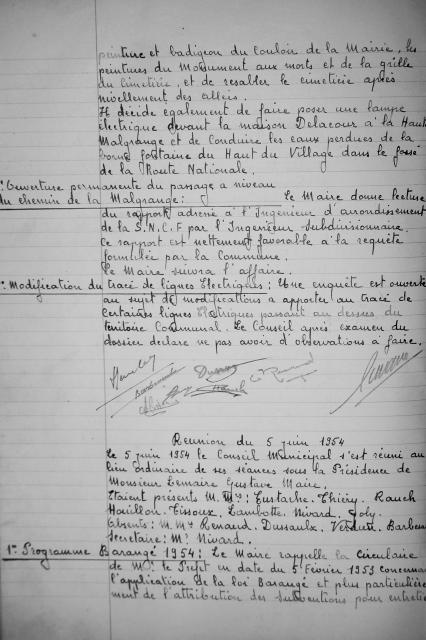 peinture et badigeon du Couloir de la Mairie, les
peintures du Monument aux morts et de la grille
du Cimetière, et de resabler le cimetière après
nivellement des allées.
Il décide également de faire poser une lampe
électrique devant la maison Delacour à la Haute
Malgrange et de Conduire les eaux perdues de la
borne fontaine du Haut du Village dans le fossé
de la Route Nationale.
Ouverture permanente du passage à niveau
du chemin de la Malgrange : le Maire donne lecture
du rapport adressé à l'Ingénieur d'arrondissement
de la S.N.C.F par l'Ingénieur Subdivisionnaire.
Ce rapport est nettement favorable à la requête
formulée par la Commune.
Le Maire suivra l'affaire.
Modification du tracé de lignes Electriques : Une enquête est ouverte
au sujet de modifications à apporter au tracé de
Certaines lignes Electriques passant au dessus du
territoire Communal. Le Conseil après examen du
dossier déclare ne pas avoir d'observations à faire.
Reunion du 5 juin 1954
Le 5 juin 1954 le Conseil Municipal s'est réuni au
lieu Ordinaire de ses séances sous la Présidence de
Monsieur Lemaire Gustave Maire.
Etaient présents M. Mrs : Eustache. Thiéry. Rauch
Houillon. Tissoux. Lambotte. Nivard. Joly.
Absents : M. Mrs Renaud. Dussaulx. Verdun. Barbem
Secrétaire : Mr Nivard.
1º Programme Barangé 1954 : Le Maire rappelle la Circulaire
de Mr le Préfet en date du 5 Février 1953 concernan
l'application de la loi Barangé et plus particulière
ment de l'attribution des subventions pour entretie